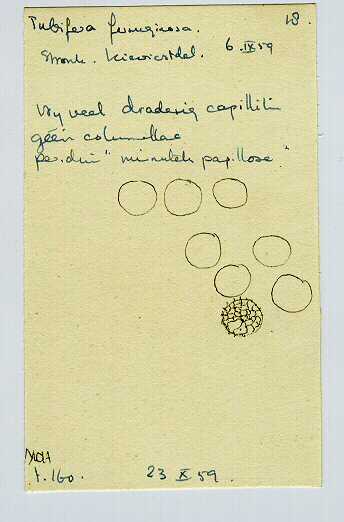 Tubifera ferruginosa. 18.
Stronk. 6.IX 59
Vrij veel draderig capillitium
géén columellae
peridium "minutely papillose"
t. 160. 23 X 59.